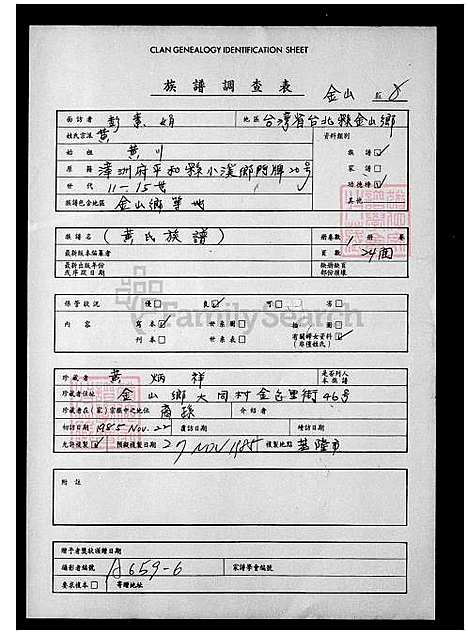 CLAN GENEALOGY IDENTIFICATION SHEET
族譜調查表 金山 8
面訪者 彭素娟 地區 台灣省台北縣金山鄉
姓氏宗派 黃 資料類別
始祖 黃川 族譜 ☑
原籍 漳洲府平和縣小溪鄉門牌20号 家譜 □
世代 11-15世 功德榜 ☑
族譜包含地區 金山鄉等地 其他
族譜名 (黃氏族譜) 冊卷數 1 冊 卷
最新版本編纂者 頁數 24面
最新出版年份
或序跋日期
保管狀況 優 □ 良 ☑ 可 □ 劣 □
內容 寫本 ☑ 世系圖 □ 插圖 □
刊本 □ 世系表 □ 有關婦女資料 ☑
FamilySearch
珍藏者 黃炳祥 是否列入
本族譜
珍藏者住址 金山鄉大同村金包里街46号
珍藏者在(家)宗族中之地位 裔孫 介紹者
初訪日期 1985 Nov. 22 復訪日期 續訪日期
允許複製 ☑ 預擬複製日期 27 NOV 1985 複製地點 基隆市
附註
贈予者獎狀頒贈日期
攝影者編號 A659-6 家譜學會編號
要求值本 □ 寄贈地址